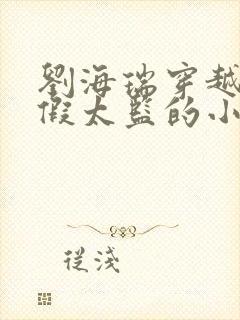 劉海瑞穿越
假太監的小
從淺